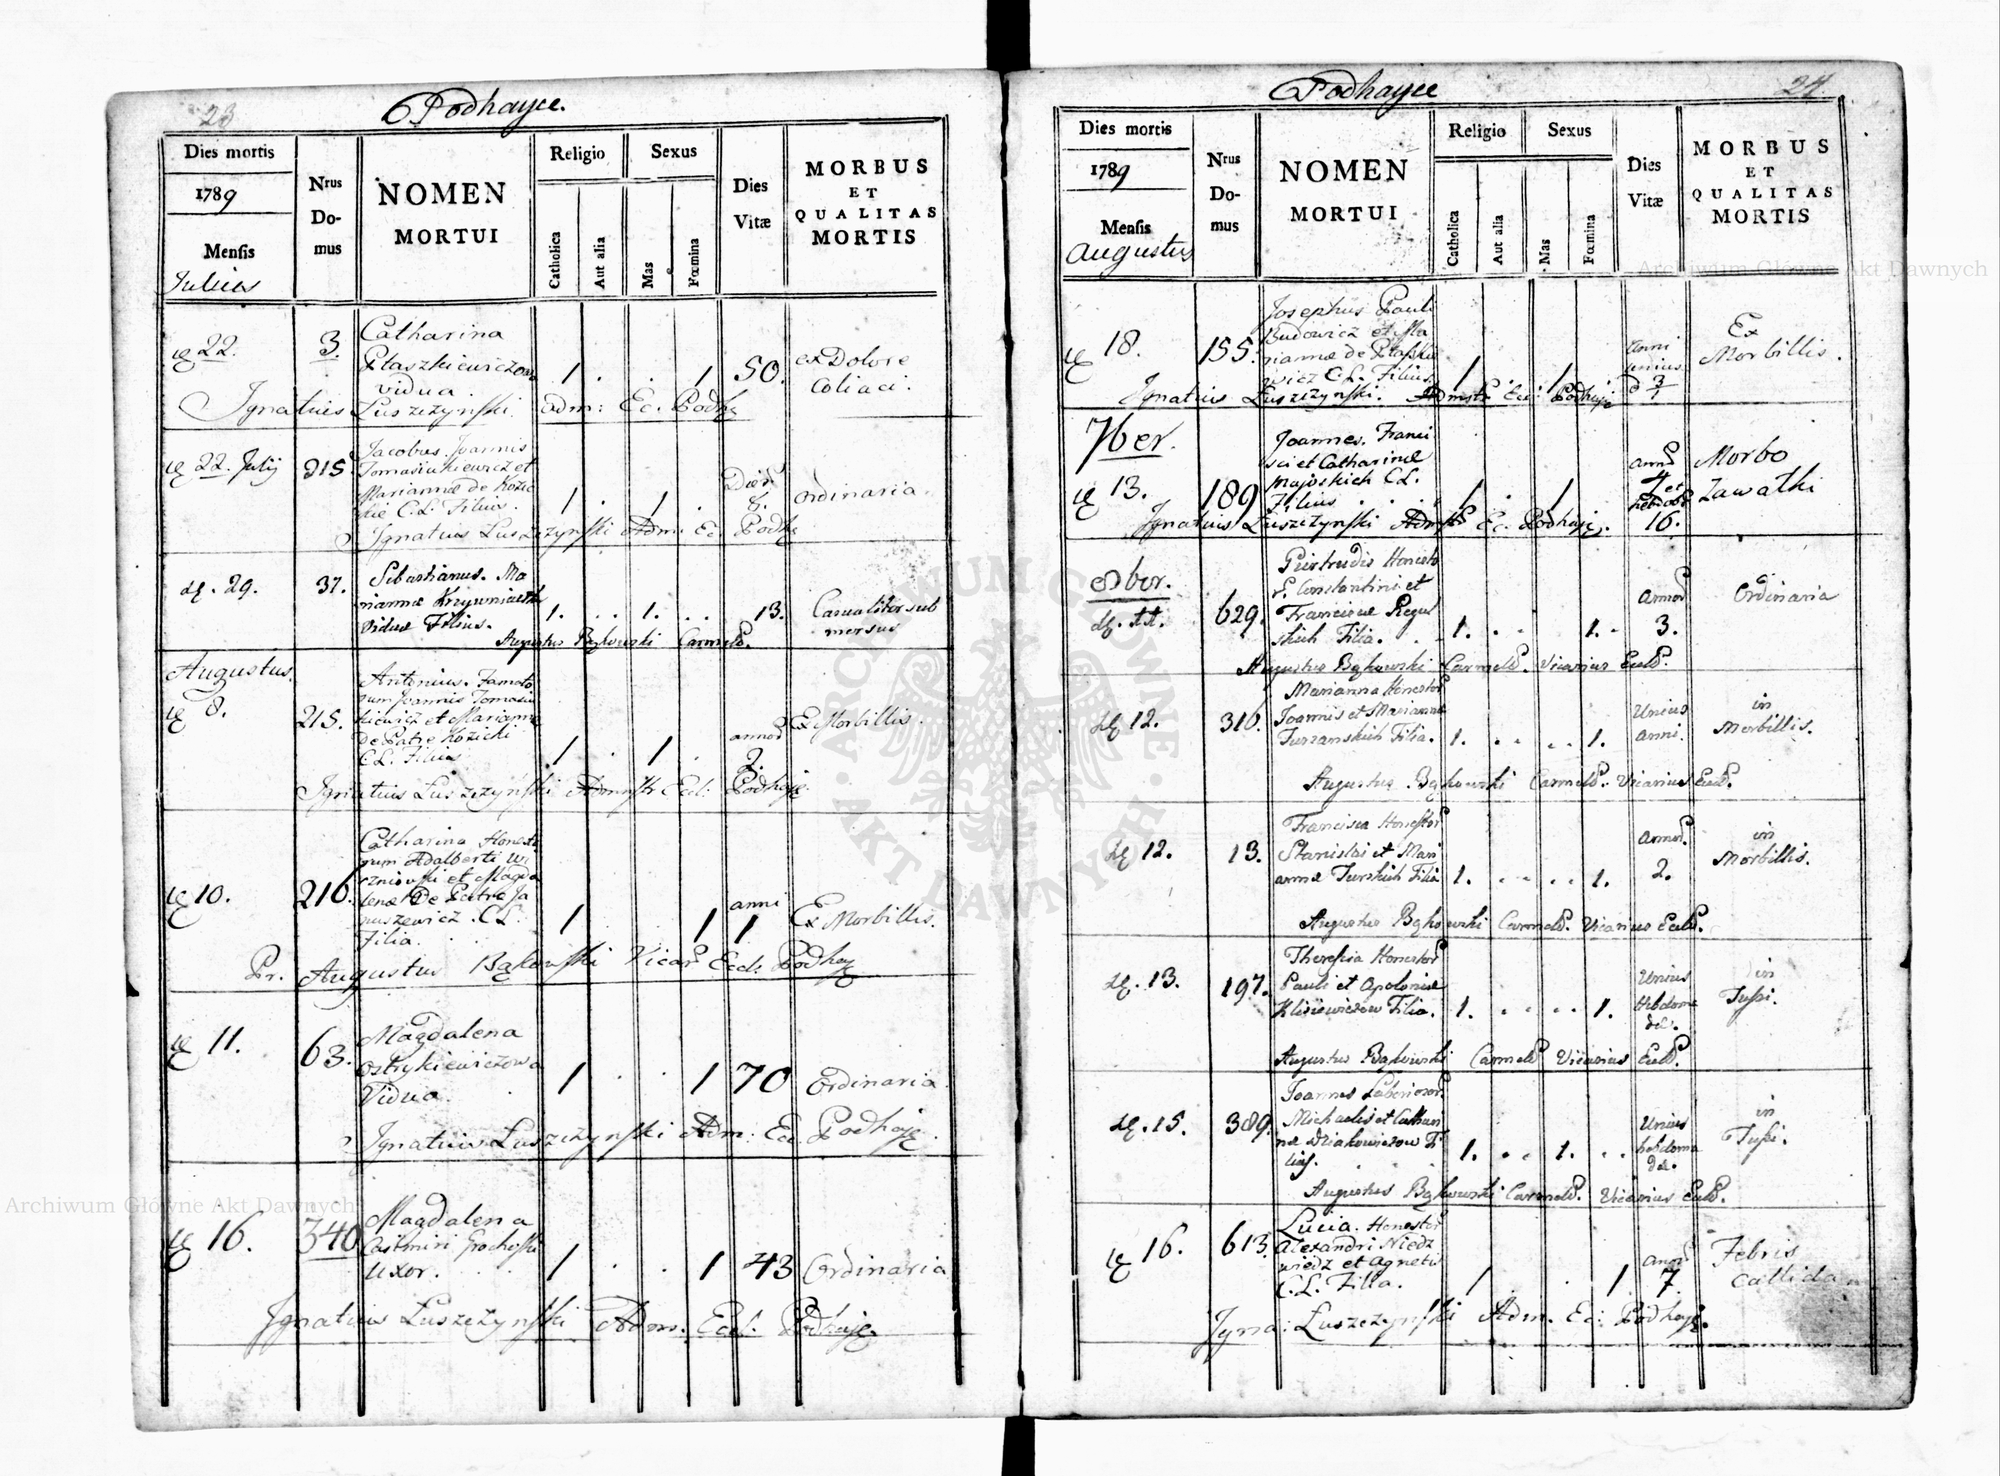 23
Podhayce.
Dies mortis
1789
Mensis
Julius
Nrus
Do-
mus
NOMEN
MORTUI
Religio
Catholica
Aut alia
Sexus
Mas
Fœmina
Dies
Vitæ
MORBUS
ET
QUALITAS
MORTIS
22.
3.
Catharina
Ptaszkiewiczowa
vidua
1 . . 1
50.
ex Dolore
Coliaci.
Ignatius Luszczynski. Adm: Ec. Podhę
22. Julij
215.
Jacobus Joannis
Tomasiukiewicz et
Mariannæ de Kozic
kie C.L. Filius.
1 . 1 .
8.
ordinaria.
Ignatius Luszczynski Adm: Ec. Podhę
d. 29.
37.
Sebastianus. Ma
riannæ
Viduæ Filius.
1. . . 1. . .
13.
Casualiter sub
mersus
Augustus Bąkowski Carmelit.
Augustus.
8.
215.
Antonius. Famato
rum Joannis Tomasiu
kiewicz et Mariannæ
De Patre Kozicki
C.L. Filius
1 . 1 .
annor
2.
Ex Morbillis.
Ignatius Luszczynski Admnstr Eccl: Podhaję.
10.
216.
Catharina Honesto
rum Adalberti Wi
szniowski et Magda
lenæ De Patre Ja
nuszewicz. C.L.
Filia.
1 . . 1
anni
1
Ex Morbillis.
Pr. Augustus Bąkowski Vicar Eccl: Podhaję
11.
63.
Magdalena
Ostrykiewiczowa
Vidua.
1 . . 1
70
Ordinaria.
Ignatius Luszczynski Adm: Ec. Podhaję.
16.
340
Magdalena
Casimiri Grochoski
Uxor.
1 . . 1
43
Ordinaria
Ignatius Luszczynski Adm. Eccl. Podhaję.
24.
Podhayce
Dies mortis
1789
Mensis
Augustus
Nrus
Do-
mus
NOMEN
MORTUI
Religio
Catholica
Aut alia
Sexus
Mas
Fœmina
Dies
Vitæ
MORBUS
ET
QUALITAS
MORTIS
18.
155.
Josephus Pauli
Budowicz et Ma
riannæ de Ptaszkie
wicz C.L. Filius
1 . 1 .
Anni
unius
Ex
Morbillis.
Ignatius Luszczynski. Admstr Ecc: Podhaję
7ber.
13.
189.
Joannes. Franci
sci et Catharinæ
Majoskich C.L.
Filius
1 . 1 .
annor
4 et
hebdom
16.
Morbo
Zawałki
Ignatius Luszczynski Admstr Ec. Podhaję.
8ber.
d. 11.
629.
Giertrudis Honesto
r. Constantini et
Franciscæ Regul
skich Filia.
1. . . 1. .
Annor
3.
Ordinaria
Augustus Bąkowski Carmelit. Vicarius Eccl.
d. 12.
316.
Marianna Honestor
Joannis et Mariannæ
Turzanskich Filia.
1. . . . . 1.
Unius
anni.
in
Morbillis.
Augustus Bąkowski Carmelit. Vicarius Eccl.
d. 12.
13.
Francisca Honestor
Stanislai et Mari
annæ Turskich Filia
1. . . . . 1.
Annor.
2.
in
Morbillis.
Augustus Bąkowski Carmelit. Vicarius Eccl.
d. 13.
197.
Theresia Honestor
Pauli et Apoloniæ
Klisiewiczow Filia.
1. . . . . 1.
Unius
Hebdoma
dæ.
in
Tussi.
Augustus Bąkowski Carmelit Vicarius Eccl.
d. 15.
389.
Joannes Laboriosor.
Michaelis et Cathari
næ Dziakowiczow Fi
lius.
1. . . 1. . .
Unius
hebdoma
dæ.
in
Tussi.
Augustus Bąkowski Carmelit. Vicarius Eccl.
16.
613.
Lucia. Honestor
Alexandri Niedz
wiedz et Agnetis
C.L. Filia.
1 . . 1
Annor
7.
Febris
Callida
Igna: Luszczynski Adm. Ec: Podhaję.
Archiwum Główne Akt Dawnych
Archiwum Główne Akt Dawnych
ARCHIWUM GŁÓWNE AKT DAWNYCH